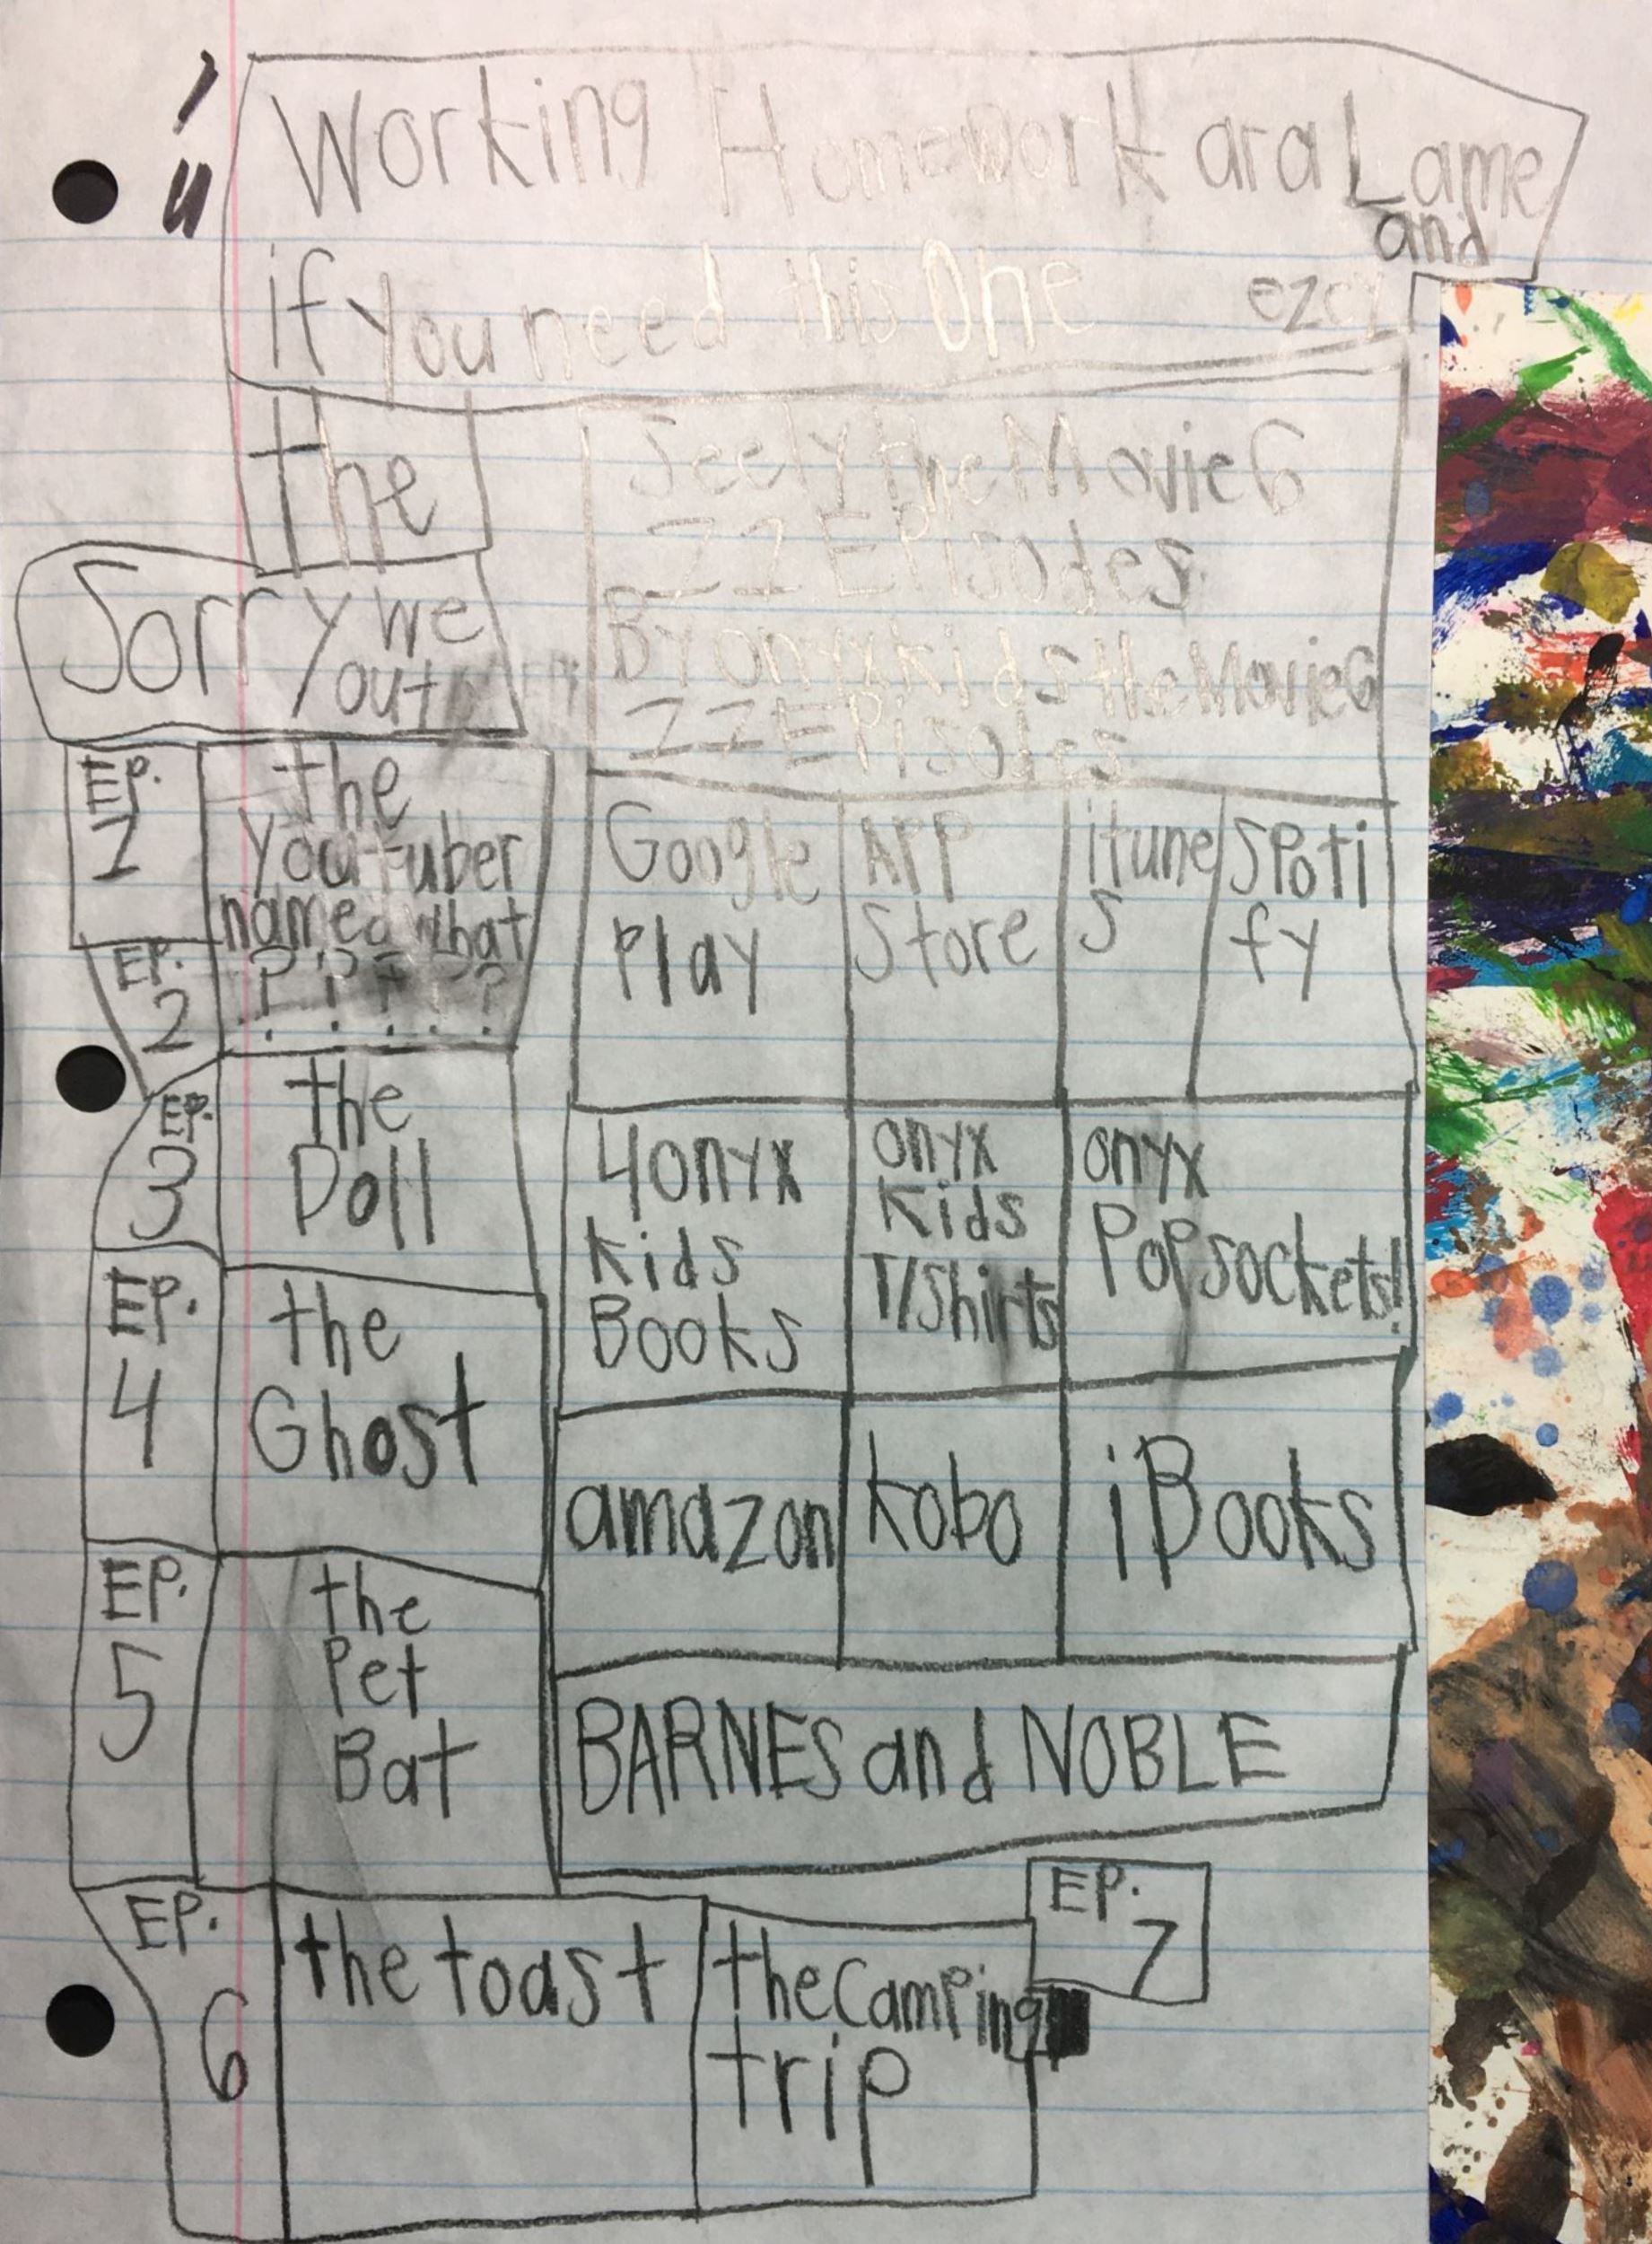 Working Homework ara Lame
and
if You need this One ezez
the
Sorry we
yout
EP.
1
the
Youtuber
named what
? ? ? ? ?
EP.
2
EP.
3
the
Doll
EP.
4
the
Ghost
EP.
5
the
Pet
Bat
EP.
6
the toast
the Camping
trip
EP.
7
Seely the Movie 6
11 EPisodes
BY onyx kids the Movie 6
11 EPisodes
Google
Play
APP
Store
itune
s
SPoti
fy
4 onyx
kids
Books
onyx
Kids
T/Shirts
onyx
PoPsockets!
amazon
kobo
iBooks
BARNES and NOBLE